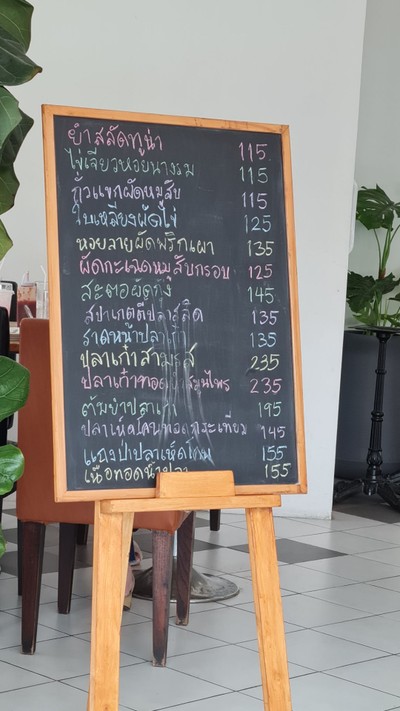 ยำสลัดทูน่า 115.
ไข่เจียวหอยนางรม 115
ถั่วแขกผัดหมูสับ 115
ใบเหลียงผัดไข่ 125
หอยลายผัดพริกเผา 135
ผัดกะเฉดหมูสับกรอบ 125
สะตอผัดกุ้ง 145
สปาเกตตี้ปลาสลิด 135
ราดหน้าปลาเก๋า 135
ปลาเก๋าสามรส 235
ปลาเก๋าทอด 235
ต้มยำปลาเก๋า 195
ปลาเห็ดโคนทอดกระเทียม 145
แกงป่าปลาเห็ดโคน 155
เนื้อทอดน้ำปลา 155